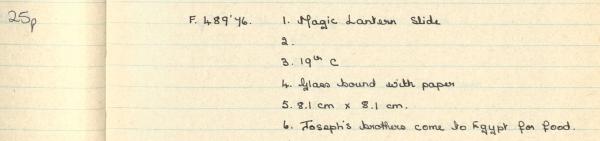 25p F. 489'76. 1. Magic Lantern Slide
2.
3. 19th C
4. Glass bound with paper
5. 8.1 cm x 8.1 cm.
6. Joseph's brothers come to Egypt for food.